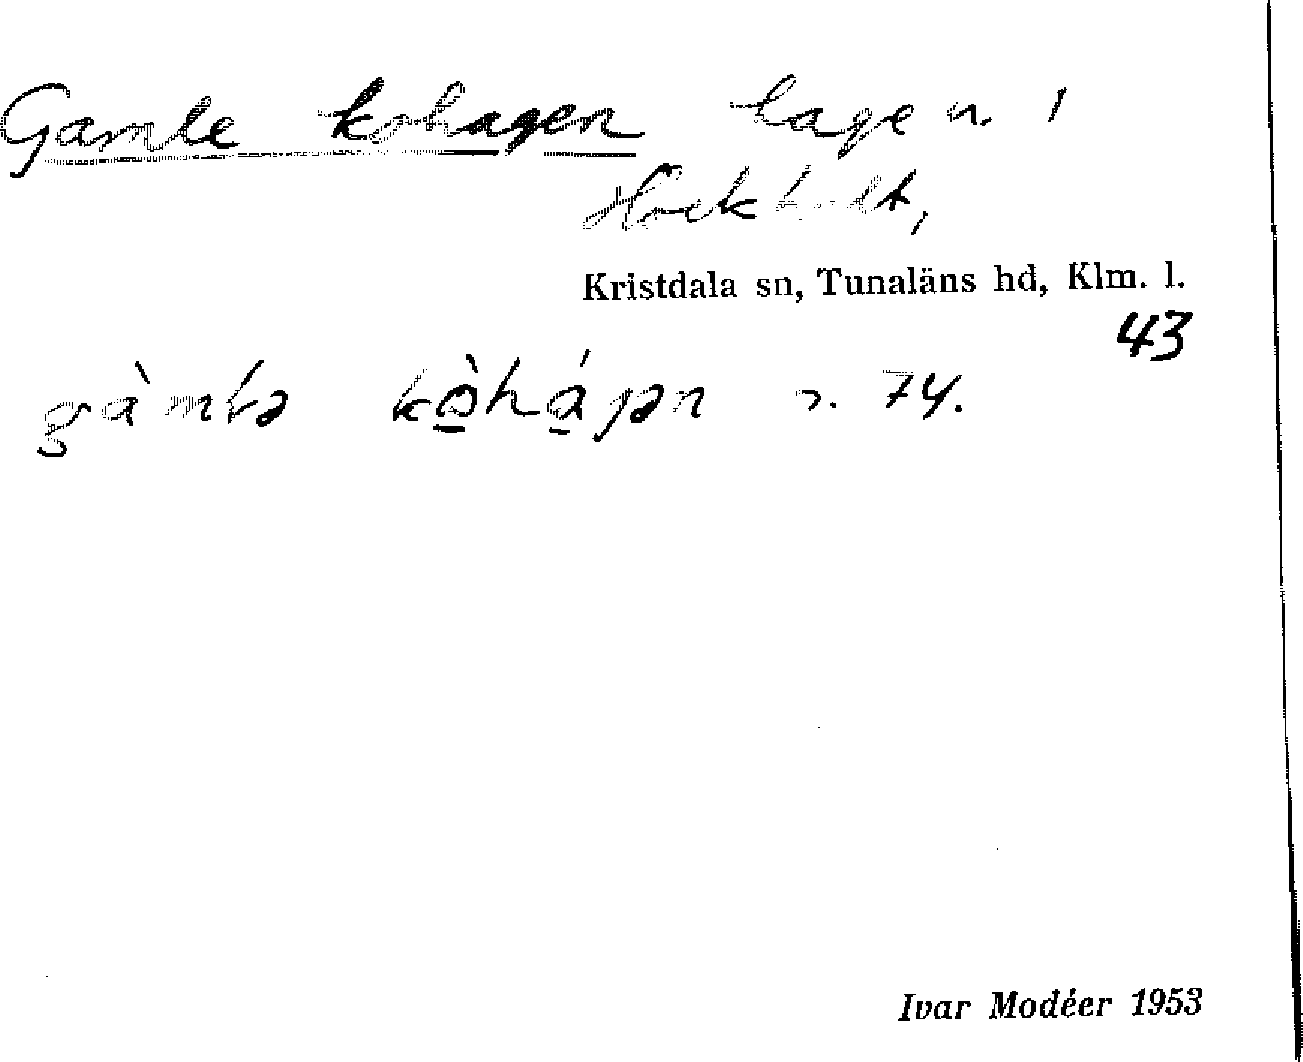 Gamle kohagen hage n. i
Höckhult,
Kristdala sn, Tunaläns hd, Klm. l.
43
gàmlə kò̱há̱gən n. 74.
Ivar Modéer 1953